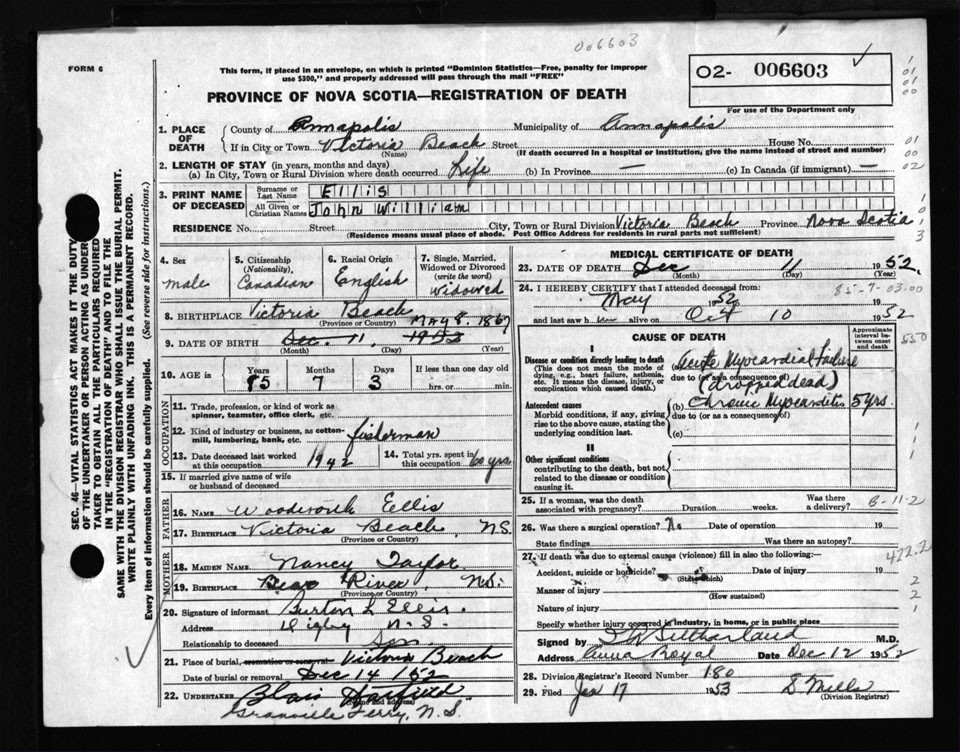 006603
FORM 6
This form, if placed in an envelope, on which is printed "Dominion Statistics—Free, penalty for improper
use $300," and properly addressed will pass through the mail "FREE"
02- 006603
For use of the Department only
PROVINCE OF NOVA SCOTIA—REGISTRATION OF DEATH
1. PLACE OF DEATH
County of Annapolis Municipality of Annapolis
If in City or Town Victoria Beach Street House No.
(Name) (If death occurred in a hospital or institution, give the name instead of street and number)
2. LENGTH OF STAY (in years, months and days)
(a) In City, Town or Rural Division where death occurred Life (b) In Province — (c) In Canada (if immigrant) —
3. PRINT NAME OF DECEASED
Surname or Last Name Ellis
All Given or Christian Names John William
RESIDENCE No. Street City, Town or Rural Division Victoria Beach Province Nova Scotia
(Residence means usual place of abode. Post Office Address for residents in rural parts not sufficient)
4. Sex male
5. Citizenship (Nationality) Canadian
6. Racial Origin English
7. Single, Married, Widowed or Divorced (write the word) widowed
8. BIRTHPLACE Victoria Beach
(Province or Country)
May 8. 1867
9. DATE OF BIRTH Dec. 11, 1952
(Month) (Day) (Year)
10. AGE in Years 85 Months 7 Days 3 If less than one day old
hrs. or min.
OCCUPATION
11. Trade, profession, or kind of work as
spinner, teamster, office clerk, etc.
12. Kind of industry or business, as cotton-
mill, lumbering, bank, etc. fisherman
13. Date deceased last worked
at this occupation 1942
14. Total yrs. spent in
this occupation 60 yrs
15. If married give name of wife
or husband of deceased
FATHER
16. NAME Ellis
17. BIRTHPLACE Victoria Beach, N.S.
(Province or Country)
MOTHER
18. MAIDEN NAME Nancy Taylor
19. BIRTHPLACE Bear River, N.S.
(Province or Country)
20. Signature of informant Burton L Ellis.
Address Digby N.S.
Relationship to deceased Son
21. Place of burial, cremation or removal Victoria Beach
Date of burial or removal Dec 14 / 52
22. UNDERTAKER Blair
(Name and address)
Granville Ferry, N.S.
MEDICAL CERTIFICATE OF DEATH
23. DATE OF DEATH Dec 11 1952.
24. I HEREBY CERTIFY that I attended deceased from:
May 1952
85-7-03-00
and last saw h alive on Oct 10 1952
CAUSE OF DEATH
Approximate interval between onset and death
550
I
Disease or condition directly leading to death
(This does not mean the mode of
dying, e.g., heart failure, asthenia,
etc. It means the disease, injury, or
complication which caused death.)
(a) Acute Myocardial Failure
due to (or as a consequence of)
(dropped dead)
Antecedent causes
Morbid conditions, if any, giving
rise to the above cause, stating the
underlying condition last.
(b) Chronic Myocarditis 5 yrs.
due to (or as a consequence of)
(c)
II
Other significant conditions
contributing to the death, but not
related to the disease or condition
causing it.
25. If a woman, was the death
associated with pregnancy? Duration weeks. Was there a delivery?
B-11-2
26. Was there surgical operation? No Date of operation 19
State findings Was there an autopsy?
27. If death was due to external causes (violence) fill in also the following:—
422.2
Accident, suicide or homicide? Date of injury 19
(State which)
Manner of injury
(How sustained)
Nature of injury
Specify whether injury occurred in industry, in home, or in public place
Signed by Sutherland M.D.
Address Anna Royal Date Dec 12 1952
28. Division Registrar's Record Number 180
29. Filed Jan 17 1953
(Division Registrar)
SEC. 46—VITAL STATISTICS ACT MAKES IT THE DUTY
OF THE UNDERTAKER OR PERSON ACTING AS UNDER-
TAKER TO OBTAIN ALL THE PARTICULARS REQUIRED
IN THE "REGISTRATION OF DEATH" AND TO FILE THE
SAME WITH THE DIVISION REGISTRAR WHO SHALL ISSUE THE BURIAL PERMIT.
WRITE PLAINLY WITH UNFADING INK. THIS IS A PERMANENT RECORD.
Every item of information should be carefully supplied. (See reverse side for instructions.)